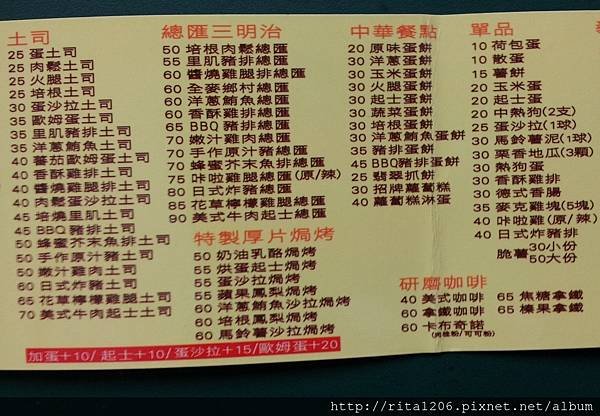 土司
25 蛋土司
25 肉鬆土司
25 火腿土司
25 培根土司
30 蛋沙拉土司
35 歐姆蛋土司
35 里肌豬排土司
35 洋蔥鮪魚土司
40 蕃茄歐姆蛋土司
40 香酥雞排土司
40 醬燒雞腿排土司
40 肉鬆蛋沙拉土司
45 培燒里肌土司
45 BBQ豬排土司
50 蜂蜜芥末魚排土司
50 手作原汁豬土司
50 嫩汁雞肉土司
60 日式炸豬土司
65 花草檸檬雞腿土司
70 美式牛肉起士土司
總匯三明治
50 培根肉鬆總匯
55 里肌豬排總匯
60 醬燒雞腿排總匯
60 全麥鄉村總匯
60 洋蔥鮪魚總匯
60 香酥雞排總匯
65 BBQ豬排總匯
70 嫩汁雞肉總匯
70 手作原汁豬總匯
70 蜂蜜芥末魚排總匯
75 咔啦雞腿總匯(原/辣)
80 日式炸豬總匯
85 花草檸檬雞腿總匯
90 美式牛肉起士總匯
特製厚片焗烤
50 奶油乳酪焗烤
55 烘蛋起士焗烤
55 蛋沙拉焗烤
55 蘋果鳳梨焗烤
60 洋蔥鮪魚沙拉焗烤
60 培根鳳梨焗烤
60 馬鈴薯沙拉焗烤
加蛋+10/起士+10/蛋沙拉+15/歐姆蛋+20
中華餐點
20 原味蛋餅
30 洋蔥蛋餅
30 玉米蛋餅
30 火腿蛋餅
30 起士蛋餅
30 蔬菜蛋餅
30 培根蛋餅
30 洋蔥鮪魚蛋餅
35 豬排蛋餅
45 BBQ豬排蛋餅
25 翡翠抓餅
30 招牌蘿蔔糕
40 蘿蔔糕淋蛋
單品
10 荷包蛋
10 散蛋
15 薯餅
20 玉米蛋
20 起士蛋
20 中熱狗(2支)
25 蛋沙拉(1球)
30 馬鈴薯泥(1球)
30 栗香地瓜(3顆)
30 熱狗蛋
30 香酥雞排
30 德式香腸
35 麥克雞塊(5塊)
40 咔啦雞(原/辣)
40 日式炸豬排
脆薯 30小份
50大份
研磨咖啡
40 美式咖啡
60 拿鐵咖啡
60 卡布奇諾
(肉桂粉/可可粉)
65 焦糖拿鐵
65 榛果拿鐵
http://rita1206.pixnet.net/album